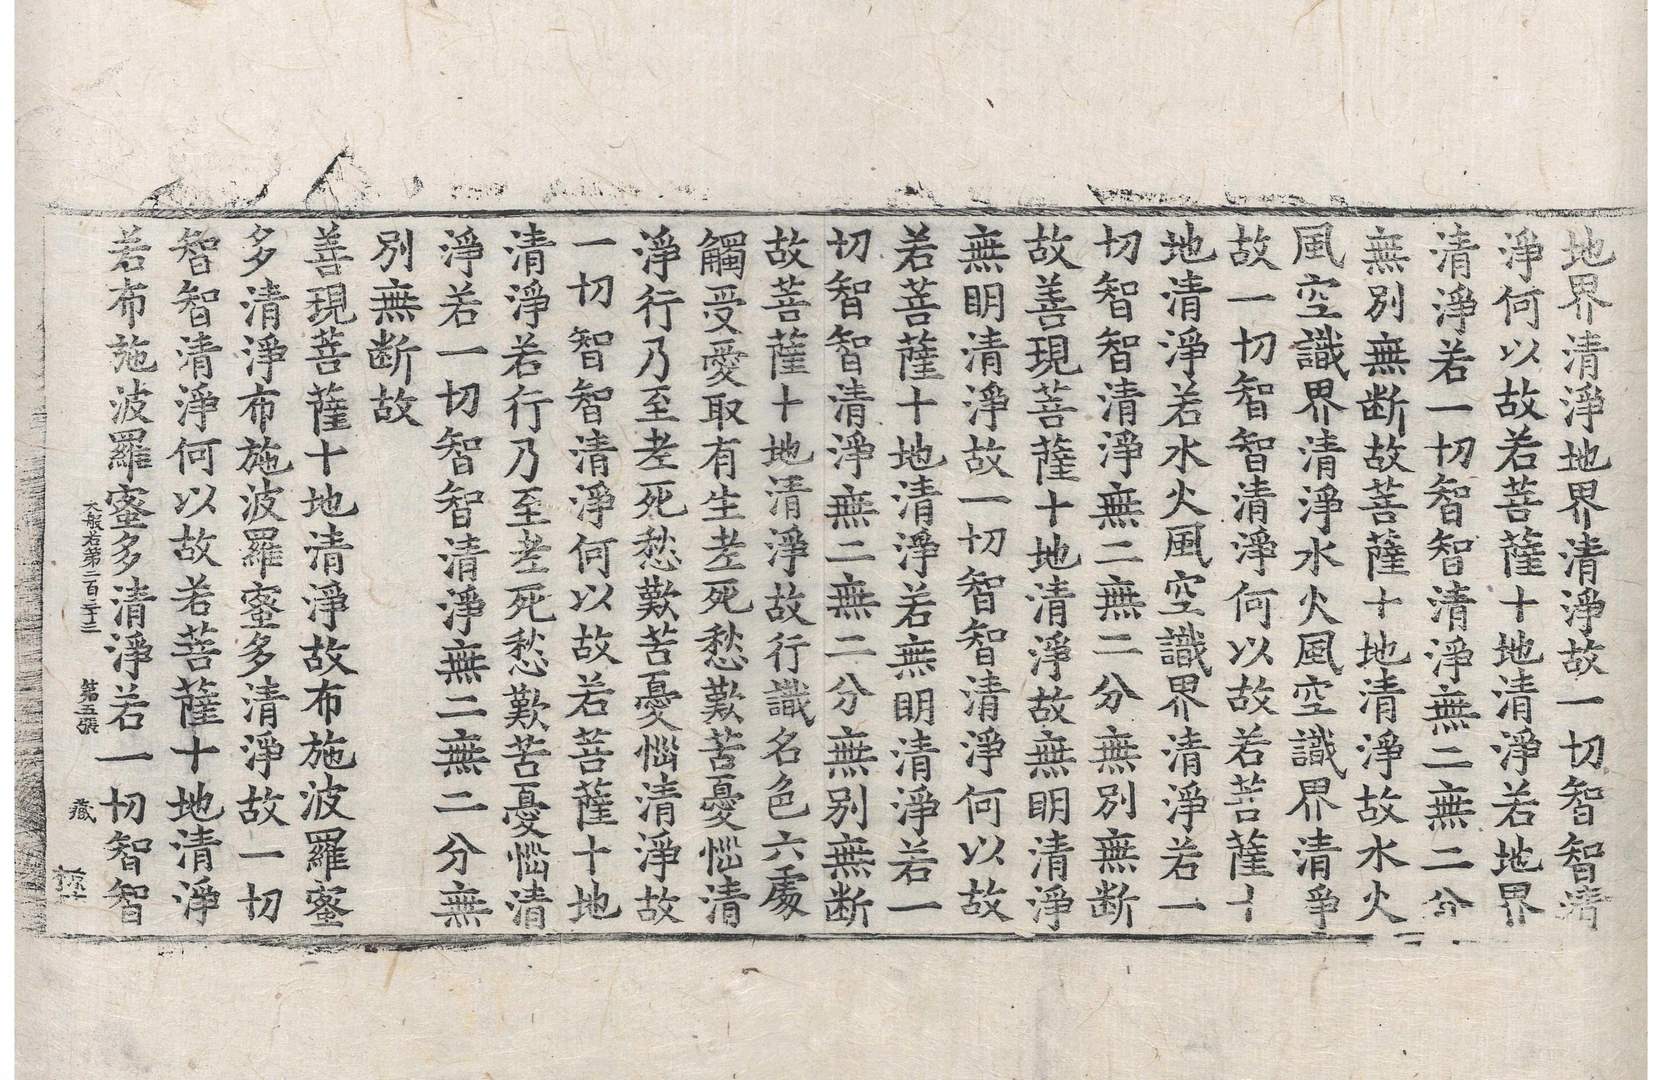 地界清淨地界清淨故一切智智清
淨何以故若菩薩十地清淨若地界
清淨若一切智智清淨無二無二分
無別無断故菩薩十地清淨故水火
風空識界清淨水火風空識界清淨
故一切智智清淨何以故若菩薩十
地清淨若水火風空識界清淨若一
切智智清淨無二無二分無別無断
故善現菩薩十地清淨故無明清淨
無明清淨故一切智智清淨何以故
若菩薩十地清淨若無明清淨若一
切智智清淨無二無二分無別無断
故菩薩十地清淨故行識名色六處
觸受愛取有生老死愁歎苦憂惱清
淨行乃至老死愁歎苦憂惱清淨故
一切智智清淨何以故若菩薩十地
清淨若行乃至老死愁歎苦憂惱清
淨若一切智智清淨無二無二分無
別無断故
善現菩薩十地清淨故布施波羅蜜
多清淨布施波羅蜜多清淨故一切
智智清淨何以故若菩薩十地清淨
若布施波羅蜜多清淨若一切智智
大般若第二百三十二 第五張 藏